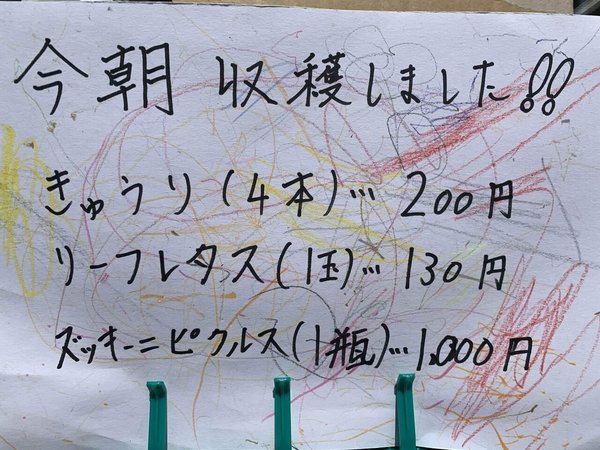 今朝 収穫しました!!
きゅうり(4本)…200円
リーフレタス(1玉)…130円
ズッキーニピクルス(1瓶)…1,000円